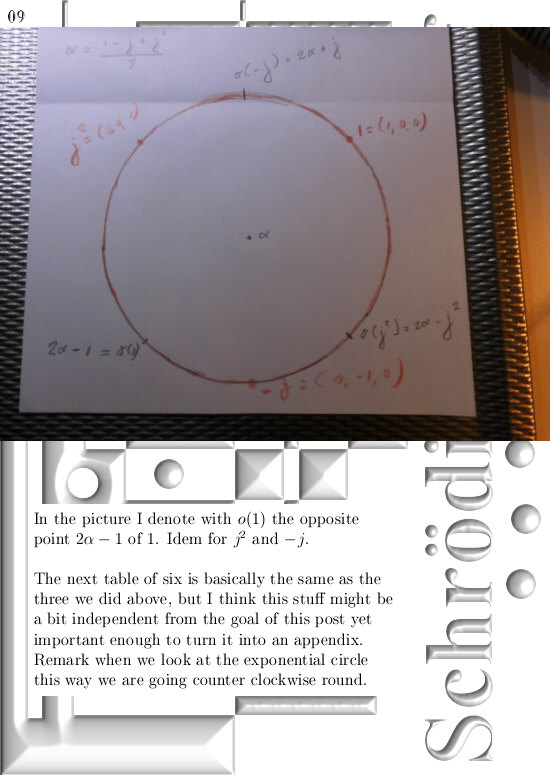 09
α = 1 - j + j² / 3
σ(-j) = 2α + j
j² = (0, 0, 1)
1 = (1, 0, 0)
α
2α - 1 = σ(1)
σ(j²) = 2α - j²
- j = (0, -1, 0)
In the picture I denote with o(1) the opposite
point 2α − 1 of 1. Idem for j² and −j.
The next table of six is basically the same as the
three we did above, but I think this stuff might be
a bit independent from the goal of this post yet
important enough to turn it into an appendix.
Remark when we look at the exponential circle
this way we are going counter clockwise round.
Schrödi